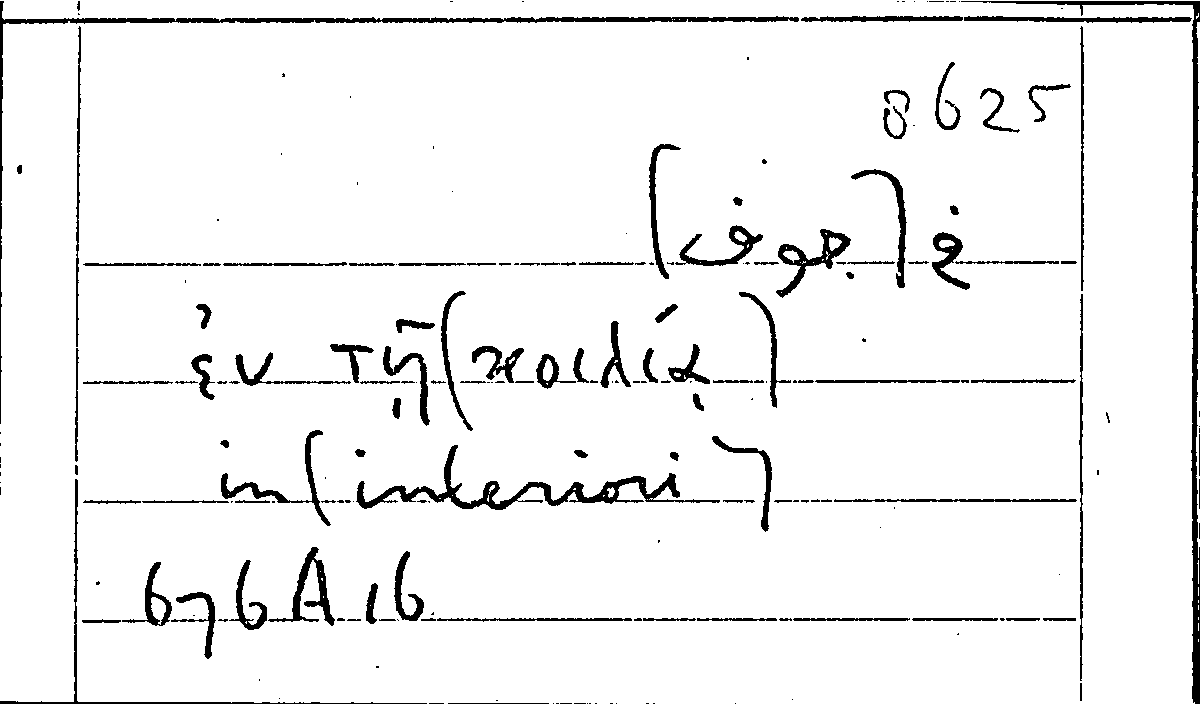 8625
في [جوف]
ἐν τῇ (κοιλίᾳ)
in (interiori)
676A16